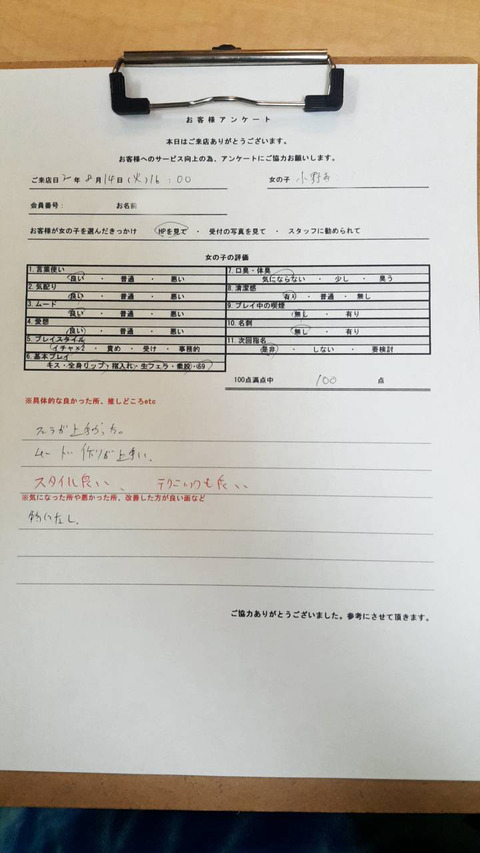 お客様アンケート
本日はご来店ありがとうございます。
お客様へのサービス向上の為、アンケートにご協力お願いします。
ご来店日 2 年 8 月 14 日 (火) 16 : 00 女の子 小野
会員番号: お名前
お客様が女の子を選んだきっかけ HPを見て ・ 受付の写真を見て ・ スタッフに勧められて
女の子の評価
1. 言葉使い
良い ・ 普通 ・ 悪い
2. 気配り
良い ・ 普通 ・ 悪い
3. ムード
良い ・ 普通 ・ 悪い
4. 愛想
良い ・ 普通 ・ 悪い
5. プレイスタイル
イチャ×2 ・ 責め ・ 受け ・ 事務的
6. 基本プレイ
キス・全身リップ・指入れ・生フェラ・素股・69
7. 口臭・体臭
気にならない ・ 少し ・ 臭う
8. 清潔感
有り ・ 普通 ・ 無し
9. プレイ中の喫煙
無し ・ 有り
10. 名刺
無し ・ 有り
11. 次回指名
是非 ・ しない ・ 要検討
100点満点中 100 点
※具体的な良かった所、推しどころetc
フェラが上手かった。
ムード作りが上手い、
スタイル良い、 テクニックも良い
※気になった所や悪かった所、改善した方が良い面など
特になし。
ご協力ありがとうございました。参考にさせて頂きます。